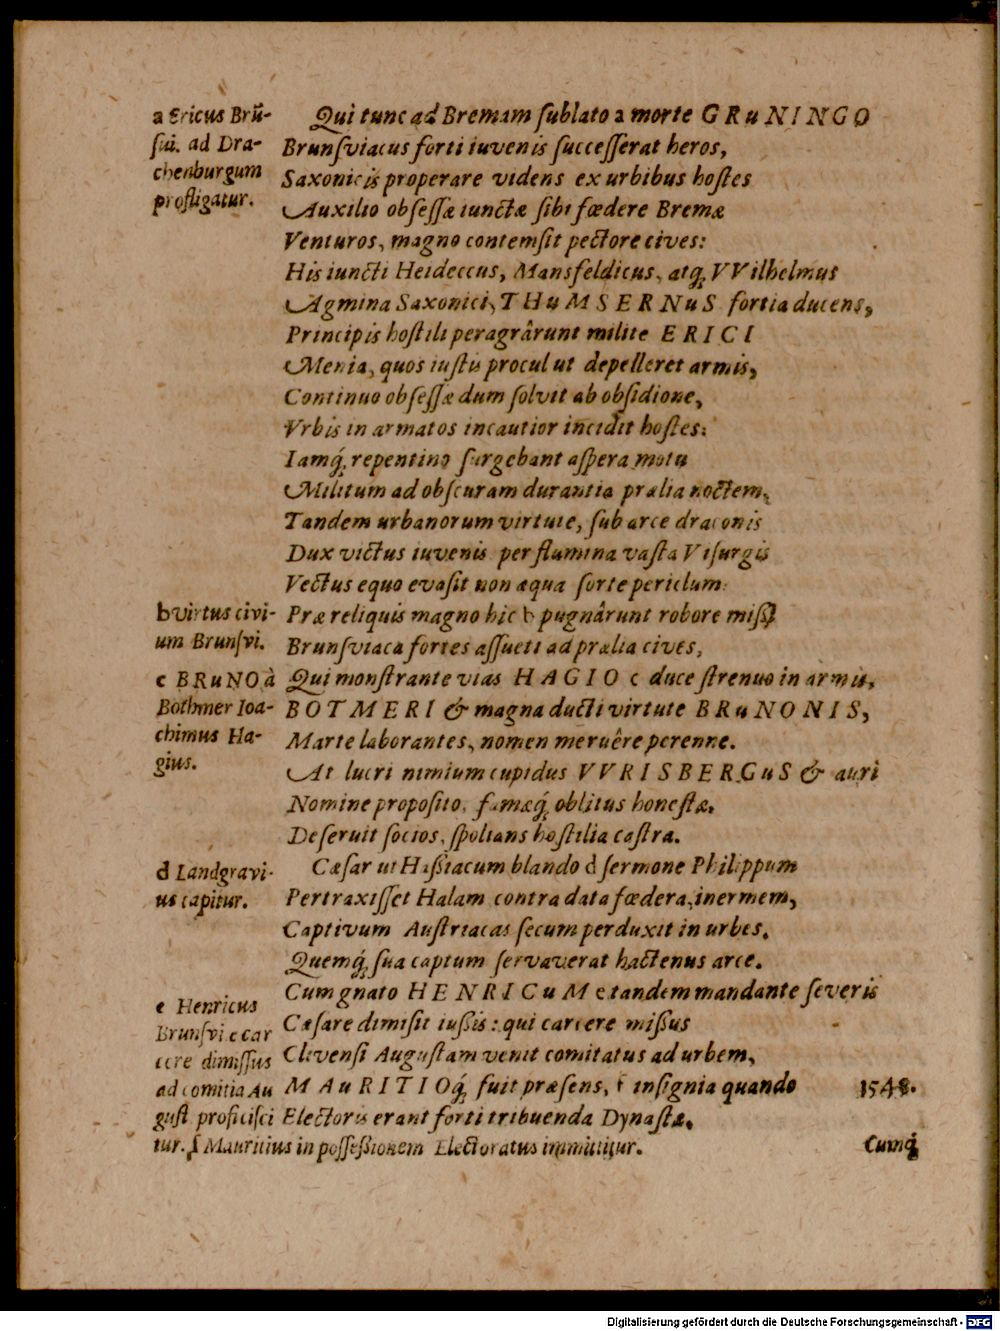 a Ericus Brũ-
ſui. ad Dra-
chenburgum
profligatur.
Qui tunc ad Bremam ſublato a morte GRuNINGO
Brunſviacus forti iuvenis ſucceſſerat heros,
Saxonicis properare videns ex urbibus hoſtes
Auxilio obſeſſæ iunctæ ſibi fœdere Bremæ
Venturos, magno contemſit pectore cives:
His iuncti Heideccus, Mansfeldicus, atq́; VVilhelmus
Agmina Saxonici, THuMSERNuS fortia ducens,
Principis hoſtili peragrârunt milite ERICI
Menia, quos iuſtis procul ut depelleret armis,
Continuo obſeſſæ dum ſolvit ab obſidione,
Vrbis in armatos incautior incidit hoſtes:
Iamq́; repentino ſurgebant aſpera motu
Militum ad obſcuram durantia prælia noctem,
Tandem urbanorum virtute, ſub arce draconis
Dux victus iuvenis per flumina vaſta Viſurgis
Vectus equo evaſit non æqua ſorte periclum:
b virtus civi-
um Brunſvi.
Præ reliquis magno hic b pugnârunt robore miſſi
Brunſviaca fortes aſſueti ad prælia cives,
c BRuNO à
Bothmer Ioa-
chimus Ha-
gius.
Qui monſtrante vias HAGIO c duce ſtrenuo in armis,
BOTMERI & magna ducti virtute BRuNONIS,
Marte laborantes, nomen meruêre perenne.
At lucri nimium cupidus VVRISBERGuS & auri
Nomine propoſito, famæq́; oblitus honeſtæ,
Deſeruit ſocios, ſpolians hoſtilia caſtra.
d Landgravi-
us capitur.
Cæſar ut Haſſiacum blando d ſermone Philippum
Pertraxiſſet Halam contra data fœdera, inermem,
Captivum Auſtriacas ſecum perduxit in urbes.
Quemq́; ſua captum ſervaverat hactenus arce.
e Henricus
Brunſvi. e car
cere dimiſſus
ad comitia Au
guſt proficiſci
tur.
Cum gnato HENRICuM e tandem mandante ſeveris
Cæſare dimiſit iuſſis: qui carcere miſſus
Clivenſi Auguſtam venit comitatus ad urbem,
MAuRITIOq́; fuit præſens, f inſignia quando
1548.
Electoris erant forti tribuenda Dynaſtæ.
f Mauritius in poſſeſſionem Electoratus immittitur.
Cumq́;
Digitalisierung gefördert durch die Deutsche Forschungsgemeinschaft - DFG